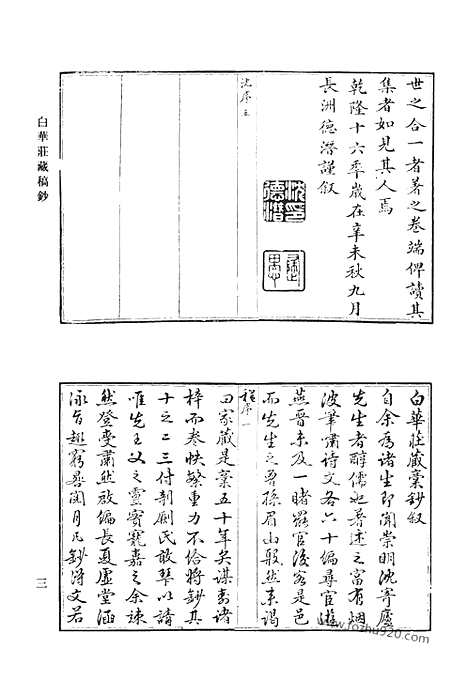 世之合一者著之卷端俾讀其
集者如見其人焉
乾隆十六年歲在辛未秋九月
長洲德潛謹叙
沈序 三
沈印德潛
白華莊藏稿鈔
白華莊藏稾鈔叙
自余為諸生即聞崇明沈寄廬
先生者醇儒也著述之富有烟
波筆嘯詩文各六十編尋官遊
燕晉未及一睹罷官後客是邑
而先生之曾孫眉山般然來謁
程序 一
曰家藏是稾五十年矣謀壽諸
梓而卷帙繁重力不恰將鈔其
十之二三付剞劂氏敢槩以請
唯先王父之靈實寵嘉之余竦
然登受肅然啟編長夏虛堂涵
泳旨趣窮晷閱月凡鈔得文若
三
www.fozhu920.com